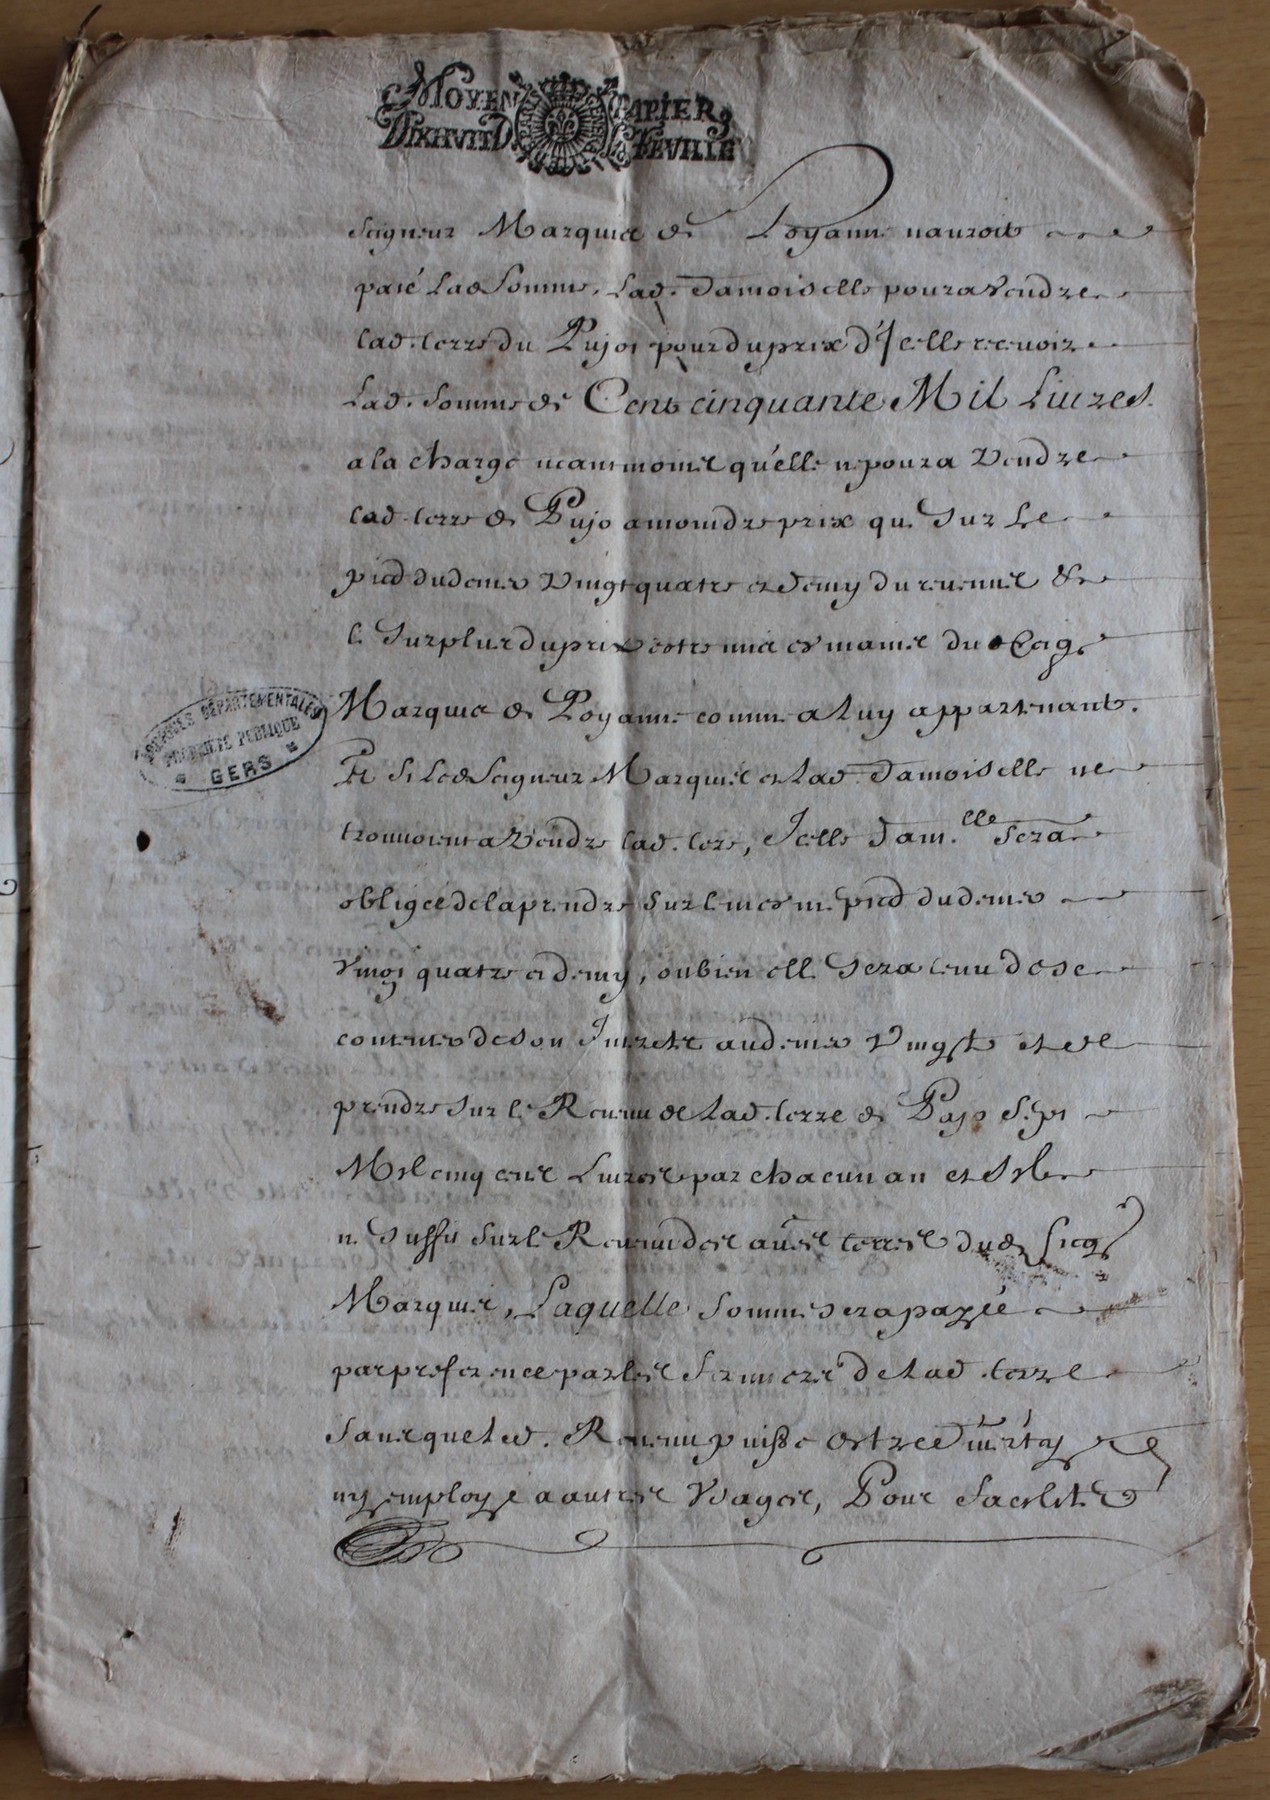 MOYEN PAPIER
DIXHVIT D. LA FEVILLE
seigneur Marquis de Poyanne nauroit
paié lad somme, lad. damoiselle poura Vendre
lad. terre du Pujos pour du prix d'Icelle recevoir
lad. somme de Cent cinquante Mil Liures
a la charge neantmoins qu'elle ne poura Vendre
lad. terre de Pujo a moindre prix que sur le
pied du denier Vingt quatre et demy du reuenu &
le surplus du prix estre mis es mains du seigr
Marquis de Poyanne comme a luy appartenant.
Et si led seigneur Marquis et lad. damoiselle ne
trouuoient a Vendre lad. tere, Icelle dam.lle sera
obligée de la prendre sur le mesme pied du denier
Vingt quatre et demy, ou bien elle sera tenu de se
contenter de son Interest au denier Vingt et de
prendre sur le Reuenu de lad. terre de Pujo Sept
Mil cinq cens Liures par chacun an et s'il
ne suffit sur le Reuenu des autres terres dud Sieg
Marquis, Laquelle somme sera payée
par preference par les fermiers de lad. terre
sans que led. Reuenu puisse estre diuerty
ny employé a autres Vsages, Pour facilit
ARCHIVES DÉPARTEMENTALES
PROPRIÉTÉ PUBLIQUE
GERS